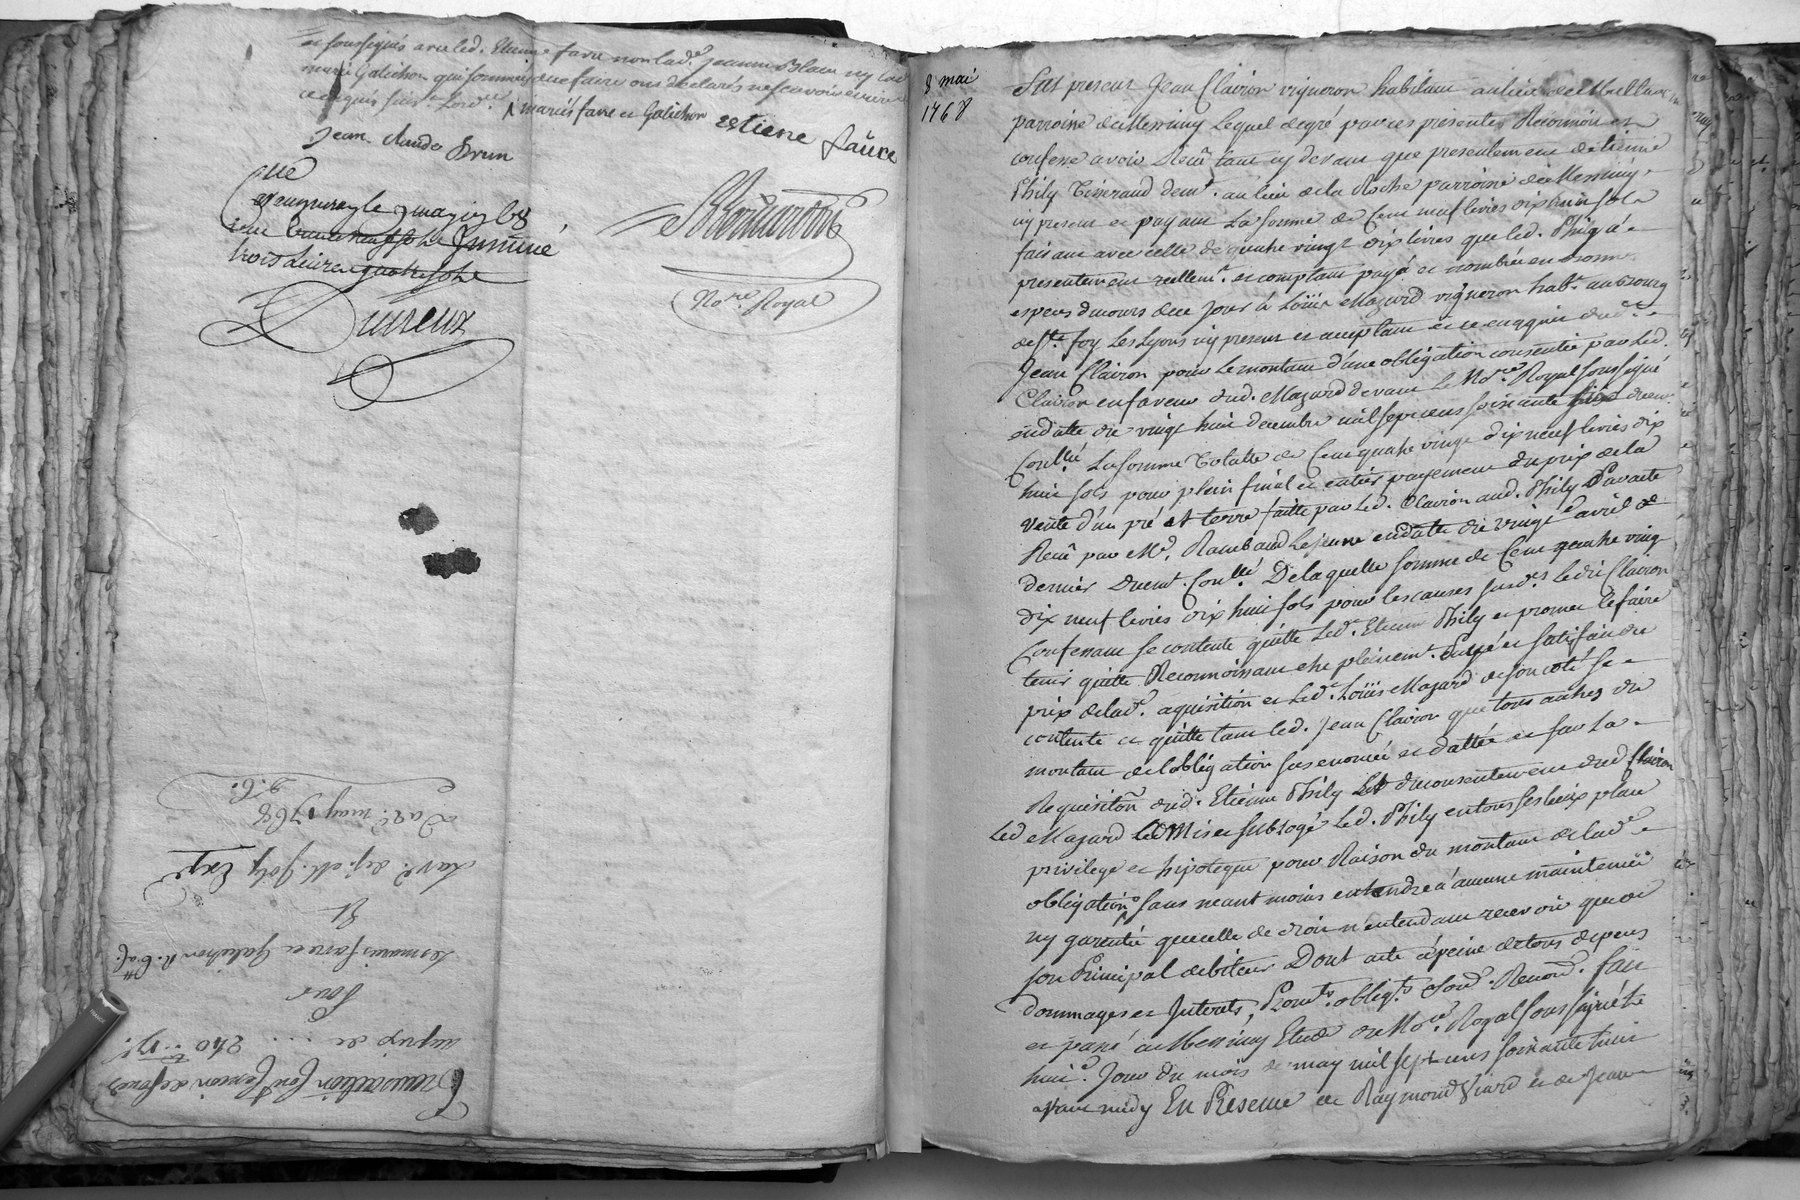 et soussignés avec led. Etienne favre non lad.e Jeanne Blain ny lad
marie Galichon qui sommés de ce faire ont déclarés ne scavoir écrire
de ce enquis suiv.t L'ord.ce
mariés favre et Galichon
estiene faure
Jean Claude Brun
No.re Royal
trois livres quatre sols
8 mai
1768
Fut present Jean Clairon vigneron habitant au lieu de
parroisse de Messimy Lequel de gré par ces presentes Reconnoit et
confesse avoir Recû tant cy devant que presentement d'etienne
Phily Tisserand dem.t au lieu de la Roche parroisse de Messimy
cy present et payant La somme de Cent neuf livres dix huit sols
faisant avec celle de quatre vingt dix livres que led. Phily a
presentement reellem.t et comptant payé et nombrée en bonnes
especes du cours de ce jour à Loüis Mazard vigneron hab.t au bourg
de S.te foy Les Lyons cy present et acceptant et ce en acquit dud.
Jean Clairon pour Le montant d'une obligation consentie par Led.
Clairon en faveur dud. Mazard devant Le No.re Royal soussigné
en datte du vingt huit decembre mil sept cens soixante
Conllé La somme Totalle de Cent quatre vingt dix neuf livres dix
huit sols pour plein final et entier payement du prix de la
vente d'un pré et terre faitte par Led. Clairon aud. Phily Par acte
Recû par M.e Rambaud Le jeune en datte du vingt avril
dernier duem.t Conllé De laquelle somme de Cent quatre vingt
dix neuf livres dix huit sols pour les causes susd.es ledit Clairon
Confessant se contente quitte Led. Etienne Phily et promet le faire
tenir quitte Reconnoissant etre pleinem.t payé et satisfait du
prix de lad.e aquisition et Led. Loüis Mazard de son coté se
contente et quitte tant led. Jean Clairon que tous autres du
montant de l'obligation sus enoncée et dattée et sur La
Requisiton dud. Etienne Phily et du consentement dud Clairon
Led Mazard a Mis et subrogé Led. Phily en tous ses lieux place
privilege et hipoteque pour Raison du montant de lad.e
obligation sans neantmoins entendre à aucune maintenüe
ny garentie que celle de droit n'entendant recevoir que de
son Principal debiteur Dont acte à peine de tous depens
dommages et Interets, Prom.ts oblig.ts Soum. Renonc. fait
et passé a Messimy Etude du No.re Royal soussigné le
huit.e Jour du mois de may mil sept cens soixante huit
avant midy En Presence de Raymond Viard et de Jean
Transaction
au prix de .... 240
Pour
Les mariés favre et Galichon
Et
Du 2.e may 1768